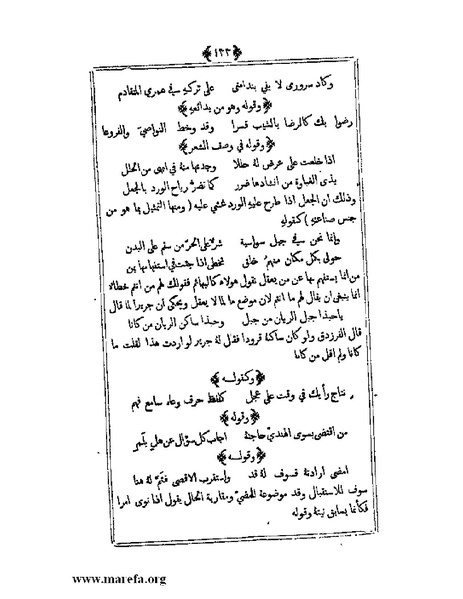 ﴿١٣٣﴾
وكاد سروري لا يفي بندامتي على تركه في عمري المتقادم
﴿وقوله وهو من بدائعه﴾
رضوا بك كالرضا بالشيب قسرا وقد وخط النواصي والفروعا
﴿وقوله في وصف الشعر﴾
اذا خلعت على عرض له حللا وجدتها منه في ابهى من الحلل
بذي الغباوة من انشادها ضرر كما تضر رياح الورد بالجعل
وذلك ان الجعل اذا طرح عليه الورد غشي عليه (ومنها التمثيل بما هو من
جنس صناعته) كقوله
وانما نحن في جيل سواسية شر على الحر من سقم على البدن
حولي بكل مكان منهم خلق تخطي اذا جئت في استفهامها بمن
من انما يستفهم بها عن من يعقل يقول هولاء كالبهائم فقولك لهم من انتم خطأ
انما ينبغي ان يقال لهم ما انتم لان موضع ما لما لا يعقل ويحكى ان جريرا لما قال
يا حبذا جبل الريان من جبل وحبذا ساكن الريان من كانا
قال الفرزدق ولو كان ساكنه قرودا فقال له جرير لو اردت هذا لقلت ما
كانا ولم اقل من كانا
﴿وكقوله﴾
نتاج رأيك في وقت على عجل كلفظ حرف وعاه سامع فهم
﴿وقوله﴾
من اقتضى بسوى الهندي حاجته اجاب كل سؤال عن هل بلم
﴿وقوله﴾
امضى ارادته فسوف له قد واستقرب الاقصى فثم له هنا
سوف للاستقبال وقد موضوعة للمضي ومقاربة الحال يقول اذا نوى امرا
فكأنما يسابق نيته وقوله
www.marefa.org